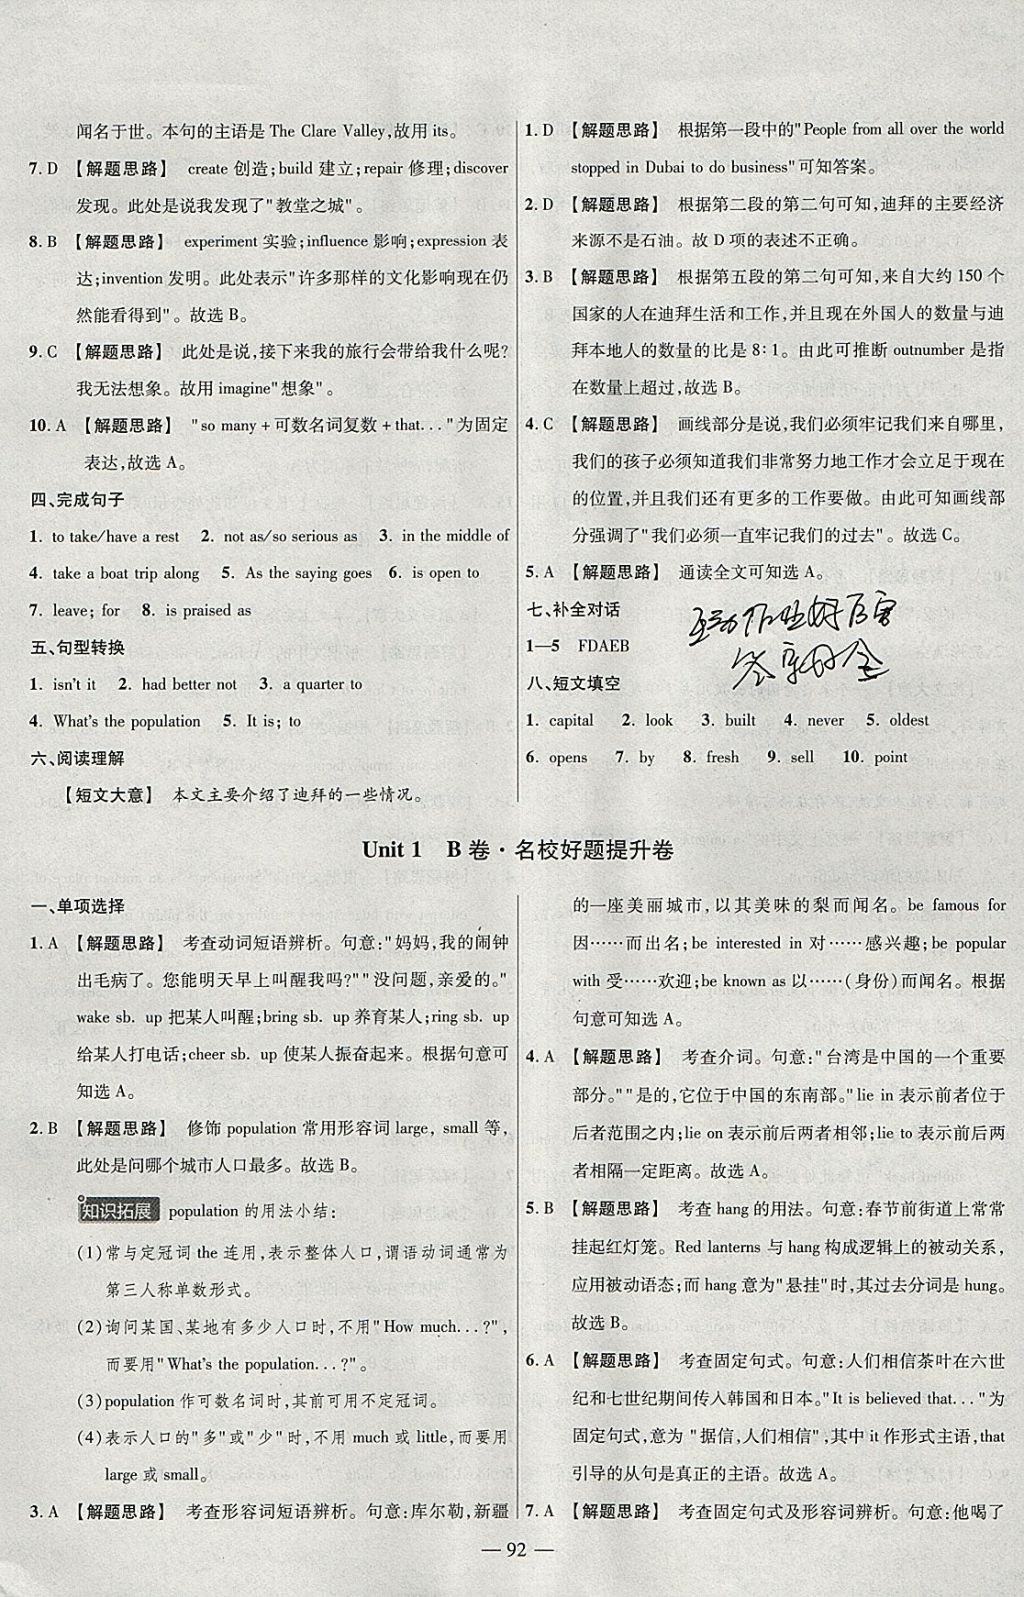 闻名于世。本句的主语是 The Clare Valley,故用 its。
7. D 【解题思路】 create 创造;build 建立;repair 修理;discover
发现。此处是说我发现了"教堂之城"。
8. B 【解题思路】 experiment 实验;influence 影响;expression 表
达;invention 发明。此处表示"许多那样的文化影响现在仍
然能看得到"。故选 B。
9. C 【解题思路】 此处是说,接下来我的旅行会带给我什么呢?
我无法想象。故用 imagine"想象"。
10. A 【解题思路】 "so many+可数名词复数+that..."为固定
表达,故选 A。
四、完成句子
1. to take/have a rest 2. not as/so serious as 3. in the middle of
4. take a boat trip along 5. As the saying goes 6. is open to
7. leave; for 8. is praised as
五、句型转换
1. isn't it 2. had better not 3. a quarter to
4. What's the population 5. It is; to
六、阅读理解
【短文大意】 本文主要介绍了迪拜的一些情况。
1. D 【解题思路】 根据第一段中的"People from all over the world
stopped in Dubai to do business"可知答案。
2. D 【解题思路】 根据第二段的第二句可知,迪拜的主要经济
来源不是石油。故 D 项的表述不正确。
3. B 【解题思路】 根据第五段的第二句可知,来自大约 150 个
国家的人在迪拜生活和工作,并且现在外国人的数量与迪
拜本地人的数量的比是 8:1。由此可推断 outnumber 是指
在数量上超过,故选 B。
4. C 【解题思路】 画线部分是说,我们必须牢记我们来自哪里,
我们的孩子必须知道我们非常努力地工作才会立足于现在
的位置,并且我们还有更多的工作要做。由此可知画线部
分强调了"我们必须一直牢记我们的过去"。故选 C。
5. A 【解题思路】 通读全文可知选 A。
七、补全对话
1—5 FDAEB
八、短文填空
1. capital 2. look 3. built 4. never 5. oldest
6. opens 7. by 8. fresh 9. sell 10. point
Unit 1 B 卷·名校好题提升卷
一、单项选择
1. A 【解题思路】 考查动词短语辨析。句意:"妈妈,我的闹钟
出毛病了。您能明天早上叫醒我吗?""没问题,亲爱的。"
wake sb. up 把某人叫醒;bring sb. up 养育某人;ring sb. up
给某人打电话;cheer sb. up 使某人振奋起来。根据句意可
知选 A。
2. B 【解题思路】 修饰 population 常用形容词 large, small 等,
此处是问哪个城市人口最多。故选 B。
知识拓展 population 的用法小结:
(1)常与定冠词 the 连用,表示整体人口,谓语动词通常为
第三人称单数形式。
(2)询问某国、某地有多少人口时,不用"How much...?",
而要用"What's the population...?"。
(3)population 作可数名词时,其前可用不定冠词。
(4)表示人口的"多"或"少"时,不用 much 或 little,而要用
large 或 small。
3. A 【解题思路】 考查形容词短语辨析。句意:库尔勒,新疆
的一座美丽城市,以其美味的梨而闻名。be famous for
因……而出名;be interested in 对……感兴趣;be popular
with 受……欢迎;be known as 以……(身份)而闻名。根据
句意可知选 A。
4. A 【解题思路】 考查介词。句意:"台湾是中国的一个重要
部分。""是的,它位于中国的东南部。"lie in 表示前者位于
后者范围之内;lie on 表示前后两者相邻;lie to 表示前后两
者相隔一定距离。故选 A。
5. B 【解题思路】 考查 hang 的用法。句意:春节前街道上常常
挂起红灯笼。Red lanterns 与 hang 构成逻辑上的被动关系,
应用被动语态;而 hang 意为"悬挂"时,其过去分词是 hung。
故选 B。
6. A 【解题思路】 考查固定句式。句意:人们相信茶叶在六世
纪和七世纪期间传入韩国和日本。"It is believed that..."为
固定句式,意为 "据信,人们相信",其中 it 作形式主语,that
引导的从句是真正的主语。故选 A。
7. A 【解题思路】 考查固定句式及形容词辨析。句意:他喝了
— 92 —